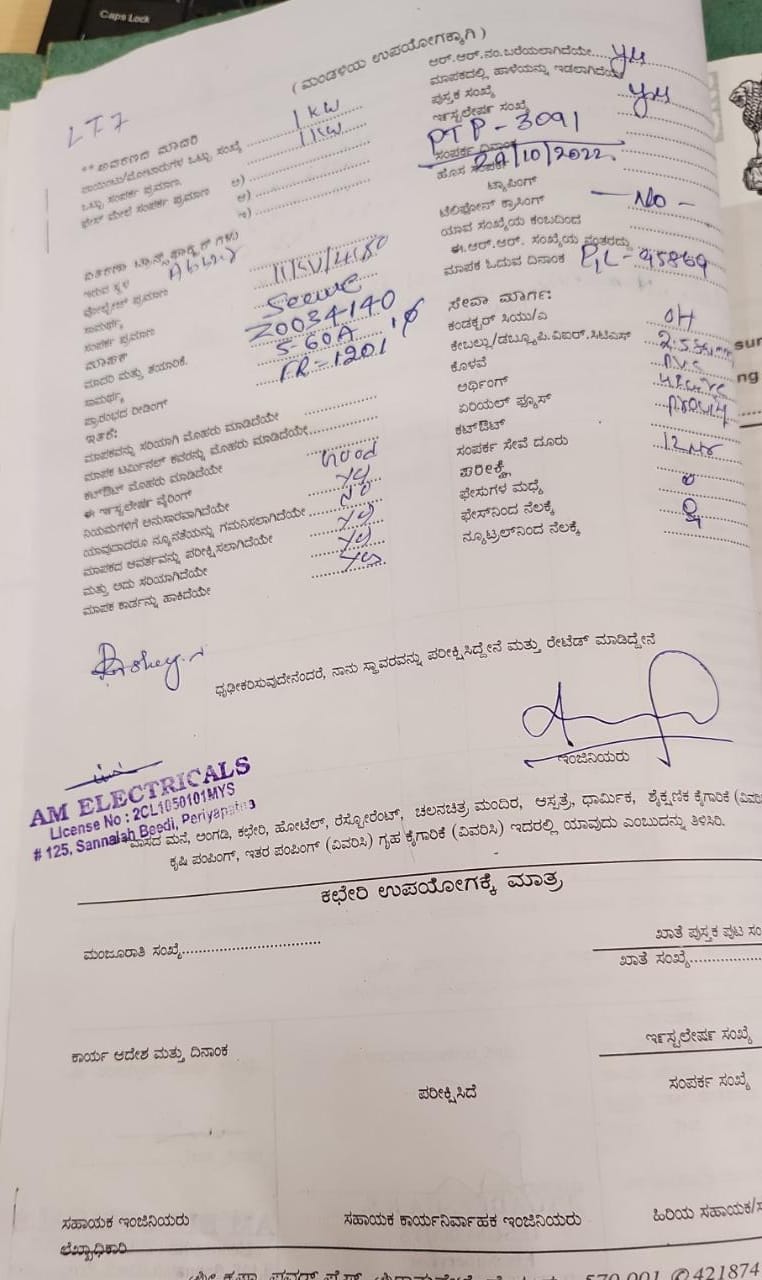 Caps Lock
( ಮಂಡಳಿಯ ಉಪಯೋಗಕ್ಕಾಗಿ )
LT7
** ಸ್ಥಾವರಣದ ಮಾದರಿ
ಒಟ್ಟು ಸಂಖ್ಯೆ 1 KW
ಒಟ್ಟು ಸಂಪರ್ಕ ಪ್ರಮಾಣ ಅ) 1 KW
ಫೇಸ್ ಮೇಲೆ ಸಂಪರ್ಕ ಪ್ರಮಾಣ ಆ)
ಇ)
ಇರುವ ಸ್ಥಳ
ವೋಲ್ಟೇಜ್ ಪ್ರಮಾಣ
ಸಾಮರ್ಥ್ಯ
ಸಂಪರ್ಕ ಪ್ರಮಾಣ
ಮಾಪಕ
ಮಾದರಿ ಮತ್ತು ತಯಾರಿಕೆ. Z0034140
ಸಾಮರ್ಥ್ಯ 5-60A 1ϕ
ಪ್ರಾರಂಭದ ರೀಡಿಂಗ್ FR=1201
ಇತರೆ:
ಮಾಪಕವನ್ನು ಸರಿಯಾಗಿ ಮೊಹರು ಮಾಡಿದೆಯೇ
ಮಾಪಕ ಟರ್ಮಿನಲ್ ಕವರನ್ನು ಮೊಹರು ಮಾಡಿದೆಯೇ
ಕಟ್‌ಔಟ್ ಮೊಹರು ಮಾಡಿದೆಯೇ
ಈ ಇನ್ಸ್ಟಲೇಷನ್ ವೈರಿಂಗ್ Good
ನಿಯಮಗಳಿಗೆ ಅನುಸಾರವಾಗಿದೆಯೇ Yes
ಯಾವುದಾದರೂ ನ್ಯೂನತೆಯನ್ನು ಗಮನಿಸಲಾಗಿದೆಯೇ No
ಮಾಪಕದ ಆವರ್ತವನ್ನು ಪರೀಕ್ಷಿಸಲಾಗಿದೆಯೇ Yes
ಮತ್ತು ಅದು ಸರಿಯಾಗಿದೆಯೇ Yes
ಮಾಪಕ ಕಾರ್ಡನ್ನು ಹಾಕಿದೆಯೇ Yes
ಆರ್.ಆರ್.ನಂ. ಬರೆಯಲಾಗಿದೆಯೇ Yes
ಮಾಪಕದಲ್ಲಿ ಹಾಳೆಯನ್ನು ಇಡಲಾಗಿದೆಯೇ
ಪುಸ್ತಕ ಸಂಖ್ಯೆ Yes
ಇನ್ಸ್ಟಲೇಷನ್ ಸಂಖ್ಯೆ
PTP-3091
ಸಂಪರ್ಕ ದಿನಾಂಕ
ಹೊಸ ಸಂಪರ್ಕ 29/10/2022
ಟ್ಯಾಪಿಂಗ್
ಟೆಲಿಫೋನ್ ಕ್ರಾಸಿಂಗ್ - No -
ಯಾವ ಸಂಖ್ಯೆಯ ಕಂಬದಿಂದ
ಈ.ಆರ್.ಆರ್. ಸಂಖ್ಯೆಯ ನಂತರದ್ದು
ಮಾಪಕ ಓದುವ ದಿನಾಂಕ PJL-45869
ಸೇವಾ ಮಾರ್ಗ:
ಕಂಡಕ್ಟರ್ ಸಿಯು/ಎ OH
ಕೇಬಲ್ಲು/ಡಬ್ಲ್ಯೂ.ಪಿ.ವಿಐಆರ್.ಸಿಟಿಎಸ್ 2.5
ಕೊಳವೆ PVC
ಅರ್ಥಿಂಗ್
ಏರಿಯಲ್ ಫ್ಯೂಸ್
ಕಟ್‌ಔಟ್
ಸಂಪರ್ಕ ಸೇವೆ ದೂರು 12
ಪರೀಕ್ಷೆ
ಫೇಸುಗಳ ಮಧ್ಯೆ
ಫೇಸ್‌ನಿಂದ ನೆಲಕ್ಕೆ
ನ್ಯೂಟ್ರಲ್‌ನಿಂದ ನೆಲಕ್ಕೆ
ಧೃಢೀಕರಿಸುವುದೇನೆಂದರೆ, ನಾನು ಸ್ಥಾವರವನ್ನು ಪರೀಕ್ಷಿಸಿದ್ದೇನೆ ಮತ್ತು ರೇಟೆಡ್ ಮಾಡಿದ್ದೇನೆ
ಇಂಜಿನಿಯರು
AM ELECTRICALS
License No : 2CL1050101MYS
# 125, Sannalah Beedi, Periyapatna
ವಾಸದ ಮನೆ, ಅಂಗಡಿ, ಕಛೇರಿ, ಹೋಟೆಲ್, ರೆಸ್ಟೋರೆಂಟ್, ಚಲನಚಿತ್ರ ಮಂದಿರ, ಆಸ್ಪತ್ರೆ, ಧಾರ್ಮಿಕ, ಶೈಕ್ಷಣಿಕ ಕೈಗಾರಿಕೆ
ಕೃಷಿ ಪಂಪಿಂಗ್, ಇತರ ಪಂಪಿಂಗ್ (ವಿವರಿಸಿ) ಗೃಹ ಕೈಗಾರಿಕೆ (ವಿವರಿಸಿ) ಇದರಲ್ಲಿ ಯಾವುದು ಎಂಬುದನ್ನು ತಿಳಿಸಿರಿ.
ಕಛೇರಿ ಉಪಯೋಗಕ್ಕೆ ಮಾತ್ರ
ಮಂಜೂರಾತಿ ಸಂಖ್ಯೆ
ಖಾತೆ ಪುಸ್ತಕ ಪುಟ ಸಂ
ಖಾತೆ ಸಂಖ್ಯೆ
ಕಾರ್ಯ ಆದೇಶ ಮತ್ತು ದಿನಾಂಕ
ಪರೀಕ್ಷಿಸಿದೆ
ಇನ್ಸ್ಟಲೇಷನ್ ಸಂಖ್ಯೆ
ಸಂಪರ್ಕ ಸಂಖ್ಯೆ
ಸಹಾಯಕ ಇಂಜಿನಿಯರು
ಲೆಖ್ಖಾಧಿಕಾರಿ
ಸಹಾಯಕ ಕಾರ್ಯನಿರ್ವಾಹಕ ಇಂಜಿನಿಯರು
ಹಿರಿಯ ಸಹಾಯಕ/ಸ
570 001 ✆421874